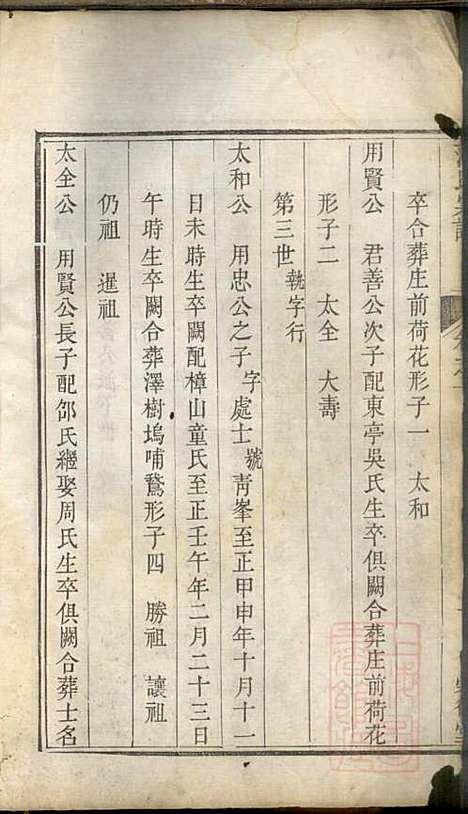 卒合葬庄前荷花形子一　太和
用賢公　君善公次子配東亭吳氏生卒俱闕合葬庄前荷花
形子二　太全　大壽
第三世執字行
太和公　用忠公之子字處士號靑峯至正甲申年十月十一
日未時生卒闕配樟山童氏至正壬午年二月二十三日
午時生卒闕合葬澤樹塢哺鷄形子四　勝祖　讓祖
仍祖　暹祖
太全公　用賢公長子配邵氏繼娶周氏生卒俱闕合葬士名